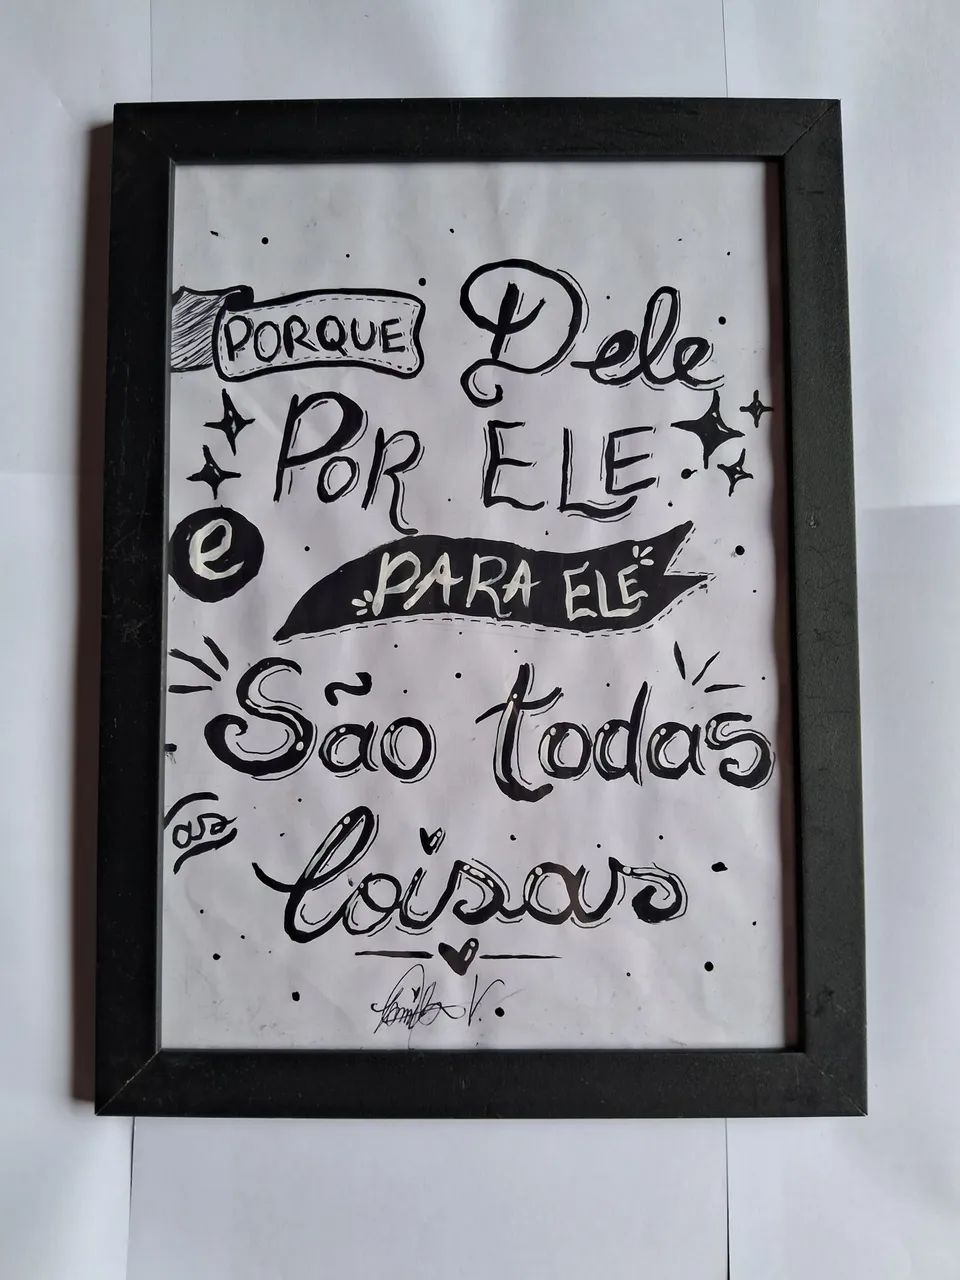 PORQUE Dele
POR ELE
e PARA ELE
São todas
as Coisas
Camila V.